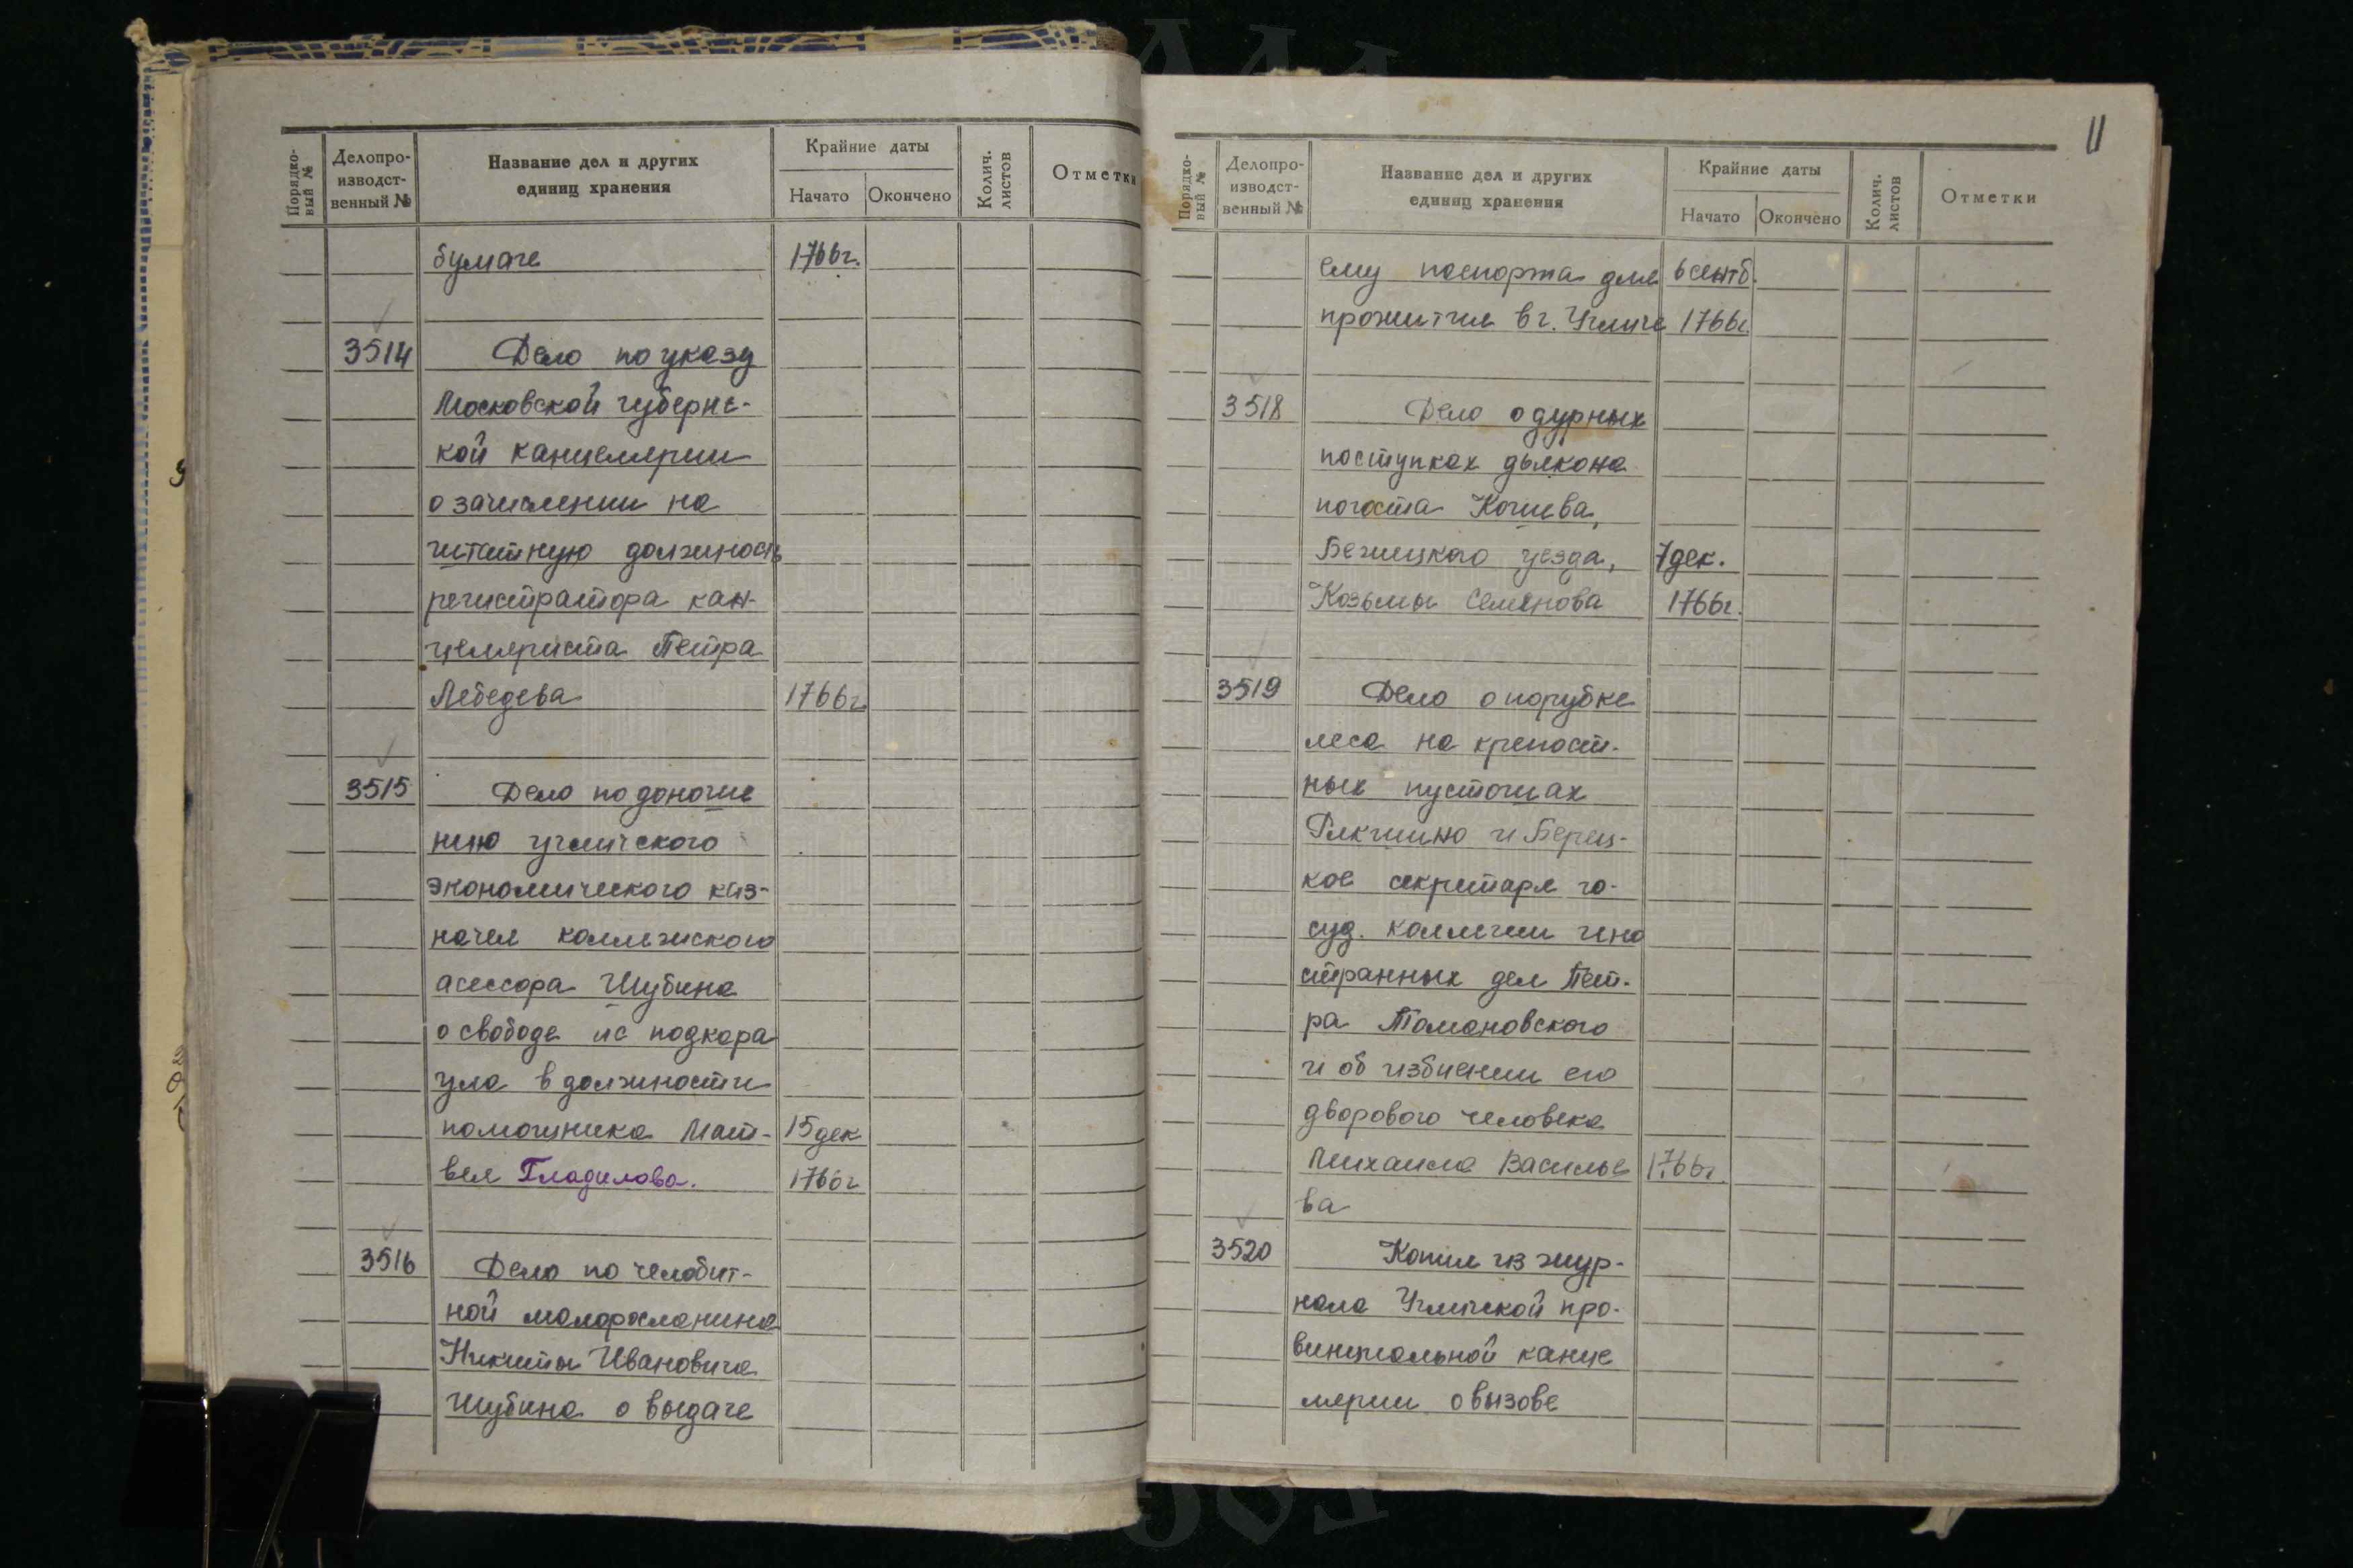 Порядко-
вый №
Делопро-
изводст-
венный №
Название дел и других
единиц хранения
Крайние даты
Начато
Окончено
Колич.
листов
Отметки
бумаге 1766г.
3514 Дело по указу
Московской губернс-
кой канцелярии
о зачислении на
штатную должность
регистратора кан-
целяриста Петра
Лебедева 1766г
3515 Дело по доноше
нию угличского
экономического каз-
начея коллежского
асессора Шубина
о свободе ис подкара
ула в должности
помощника Мат- 15 дек
вея Гладилова. 1766г
3516 Дело по челобит-
ной малоросланина
Никиты Ивановича
Шубина о выдаче
11
Порядко-
вый №
Делопро-
изводст-
венный №
Название дел и других
единиц хранения
Крайние даты
Начато
Окончено
Колич.
листов
Отметки
ему паспорта для 6 сентб.
прожития в г. Угличе 1766г.
3518 Дело о дурных
поступках дьякона
погоста Кошева,
Бежецкого уезда, 7 дек.
Козьмы Семенова 1766г.
3519 Дело о порубке
леса на крепост-
ных пустошах
и Берец-
кое секретаря го-
суд. коллегии ино
странных дел Пет-
ра Томановского
и об избиении его
дворового человека
Михаила Василье 1766г.
ва
3520 Копия из жур-
нала Угличской про-
винциальной канце
лярии о вызове